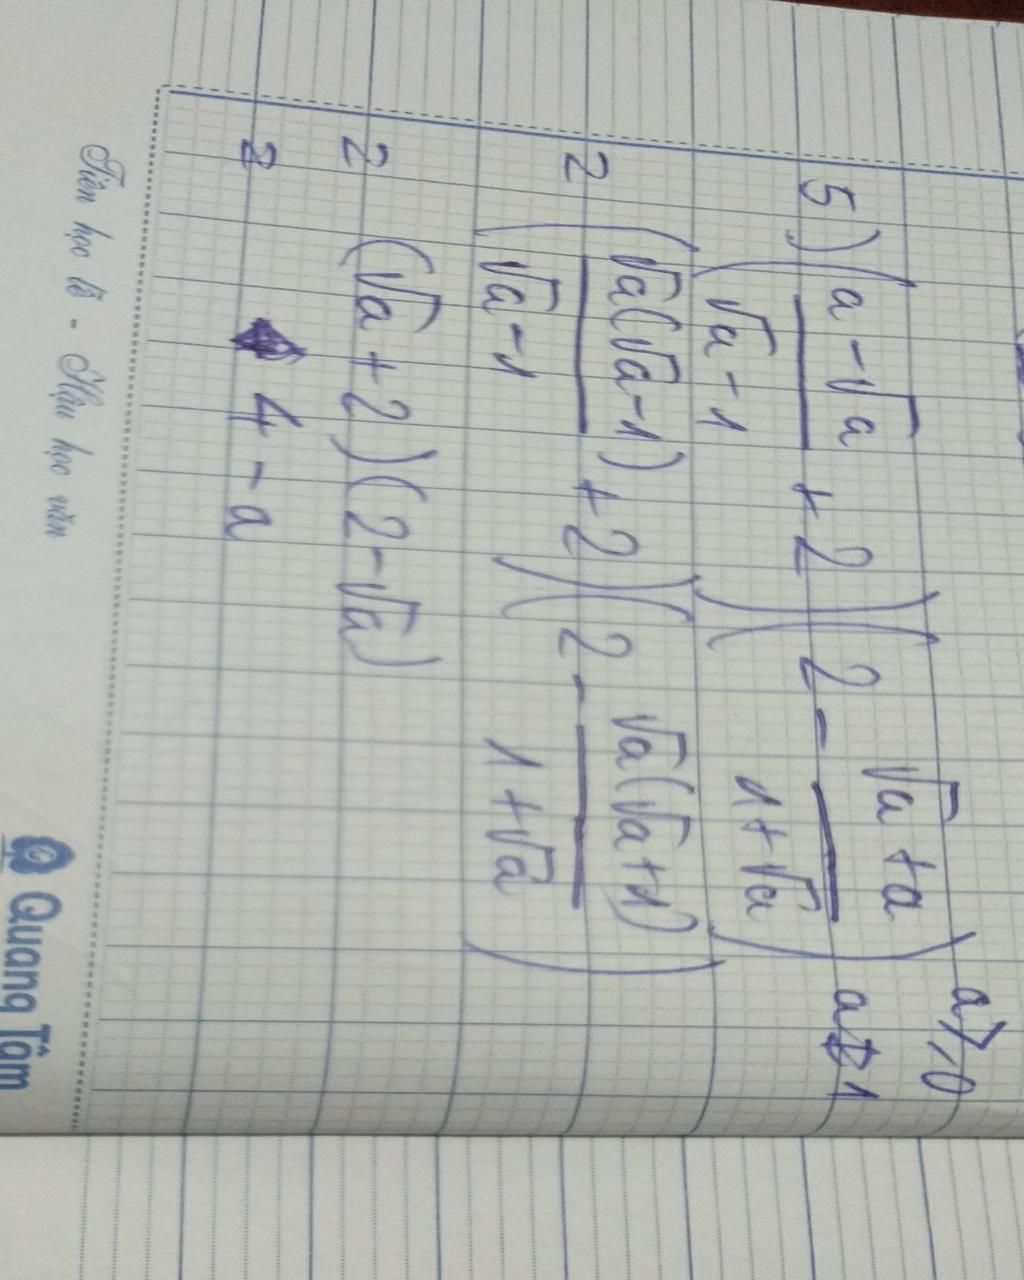 5) ( (a - √a) / (√a - 1) + 2 ) ( 2 - (√a + a) / (1 + √a) ) a ⩾ 0
a ≠ 1
2 ( √a(√a - 1) / (√a - 1) + 2 ) ( 2 - √a(√a + 1) / (1 + √a) )
2 (√a + 2) (2 - √a)
2 4 - a
Tiên học lễ - Hậu học văn
Quang Tâm